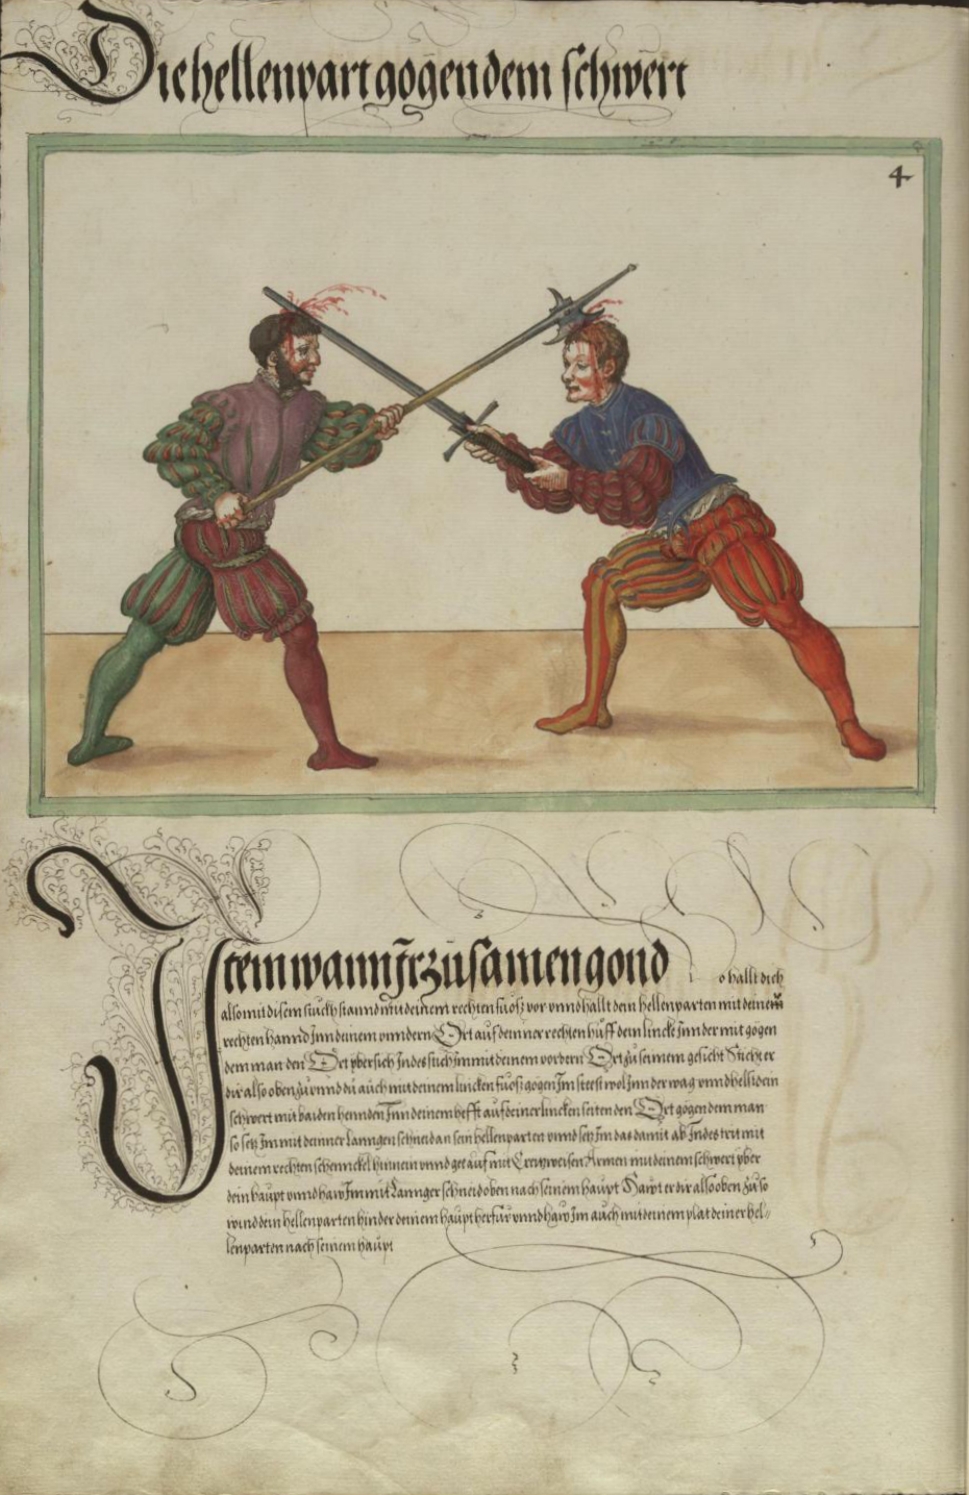 Die hellenpart gögen dem schwert
4
Item wann Ir zusamen gond so hallt dich
also mit disem stuckh stannd mit deinem rechten fuosz vor vnnd hallt dein hellenparten mit deinem
rechten hannd Inn deinem vnndern Ort auf deinner rechten huff dein lincke Inn der mit gögen
dem man den Ort ybersich Indes stich Im mit deinem vordern Ort zu seinem gesicht Sticht er
dir also oben zu vnnd du auch mit deinem lincken fuosz gögen Im steest wol Inn der wag vnnd helst dein
schwert mit baiden hennden Inn deinem hefft auf deiner lincken seiten den Ort gögen dem man
so setz Im mit deinner Lanngen schneid an sein hellenparten vnnd setz Im das damit ab Indes trit mit
deinem rechten schennckel hinnein vnnd gee auf mit Creutzweisen Armen mit deinem schwert yber
dein haupt vnnd haw Im mit Lannger schneid oben nach seinem haupt Hawt er dir also oben zu so
wind dein hellenparten hinder deinem haupt herfür vnnd haw Im auch mit deinem plat deiner hel-
lenparten nach seinem haupt